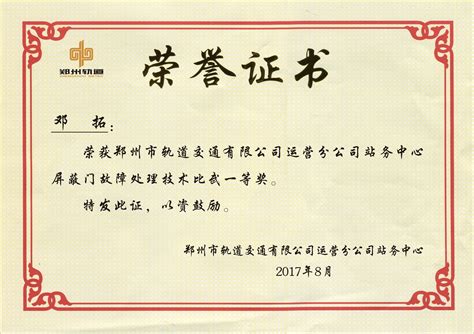 郑州轨道
荣誉证书
邓 拓：
荣获郑州市轨道交通有限公司运营分公司站务中心
屏蔽门故障处理技术比武一等奖。
特发此证，以资鼓励。
郑州市轨道交通有限公司运营分公司站务中心
2017年8月